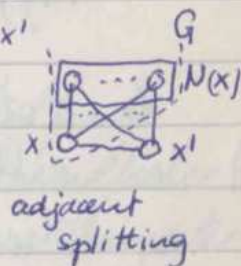 x'
G
N(x)
x
x'
adjacent
splitting